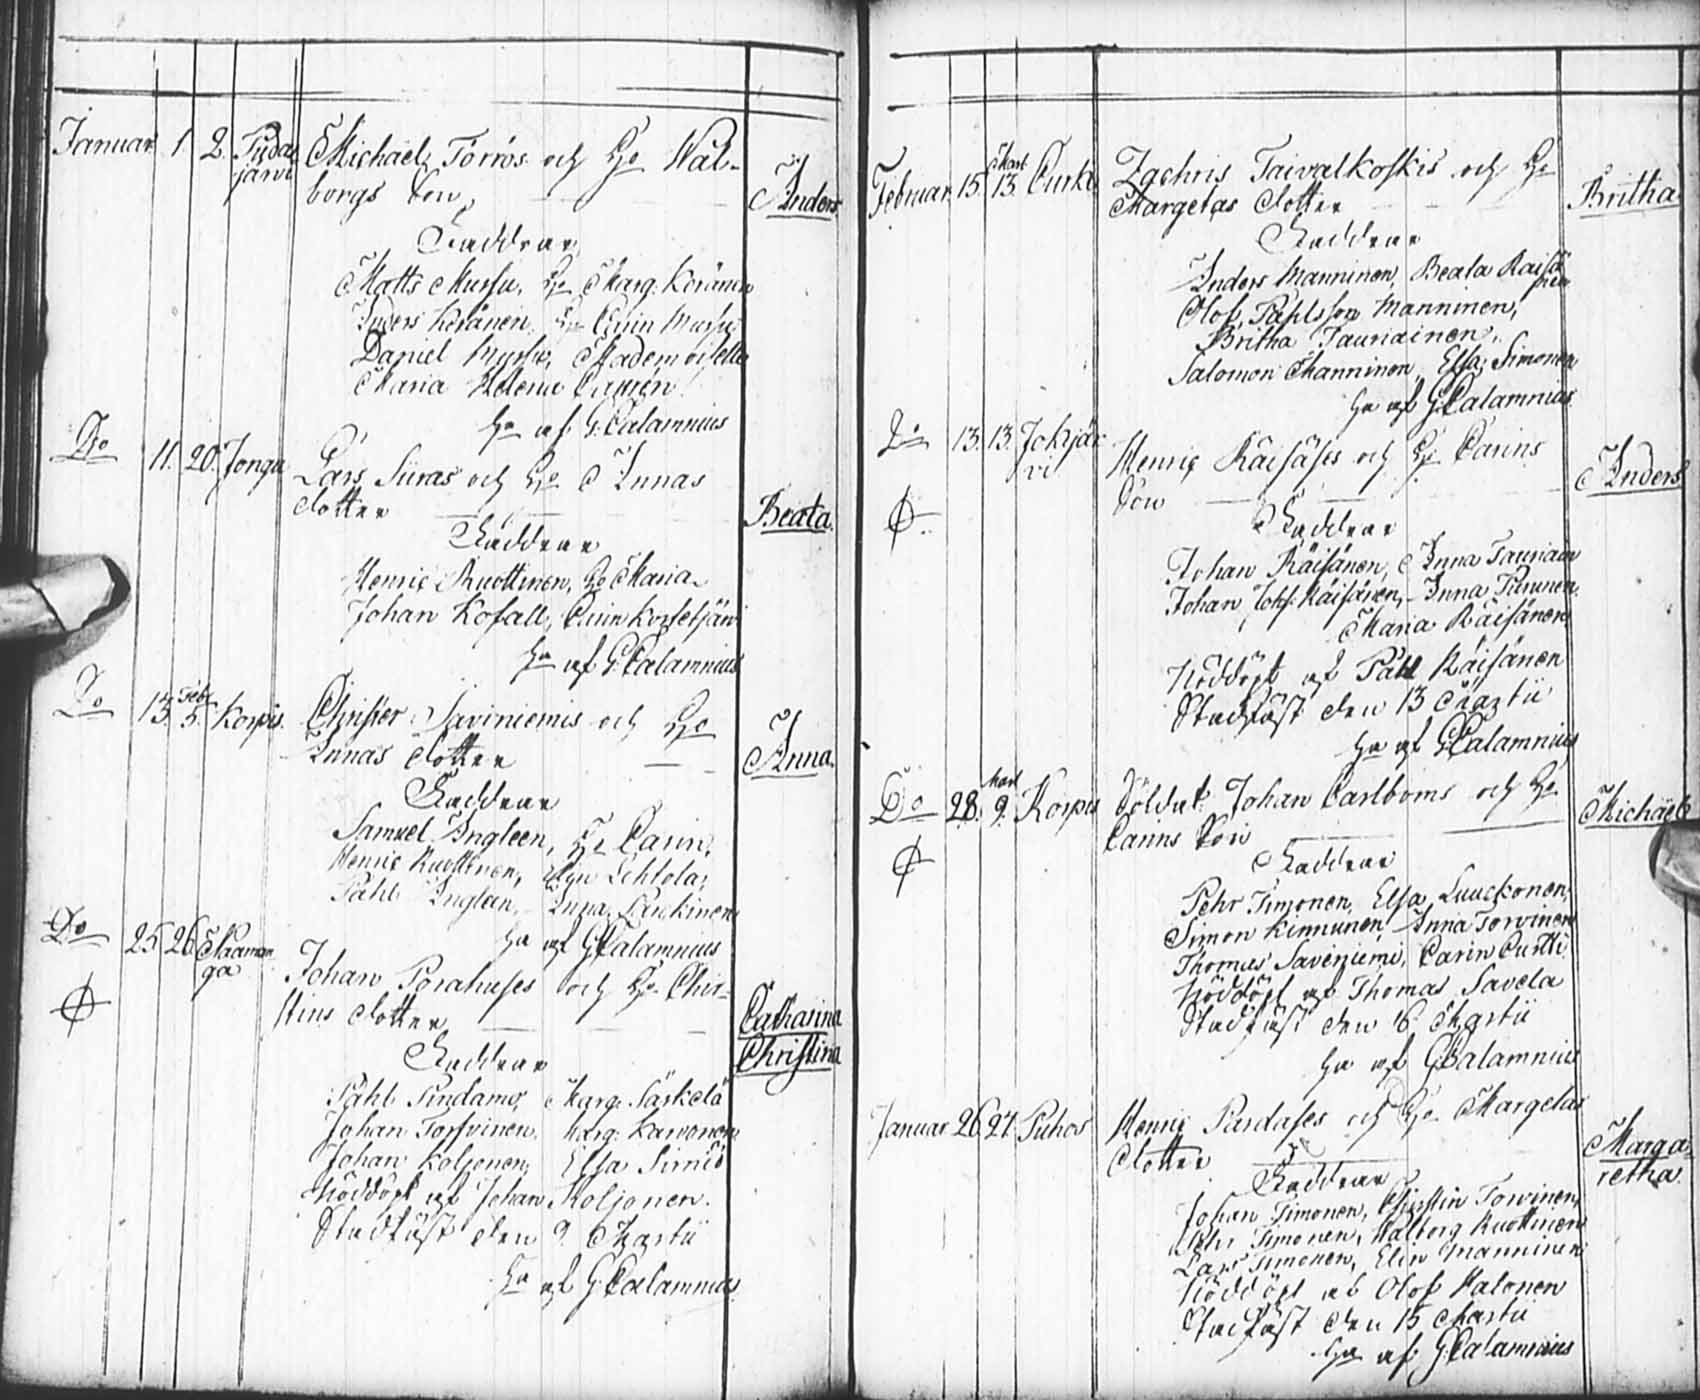 Januar. 1. 2. Pudas
järvi
Michael Törrös och Hu Wal-
borgs Son
Anders
Faddrar
Matts Mursu, Hu Marg. Keränen
Anders Keränen, Hu Carin Mursu
Daniel Mursu, Mademoiselle
Maria Helena
Hu af G. Calamnius
Do 11. 20. Jongu
Lars Siiras och Hu Annas
Dotter
Beata
Faddrar
Henric Ruottinen, Hu Maria
Johan Kofall, Carin
Hu af G. Calamnius
Do 13. Febr 5. Korpis.
Christer Saviniemis och Hu
Annas Dotter
Anna
Faddrar
Samuel Ingleen, Hu Carin,
Henric Ruottinen, Lehtola,
Påhl Ingleen, Anna
Hu af G Calamnius
Do 25. 26. Naaman
ga
Johan Porahuses och Hu Chir-
stins Dotter
Catharina
Christina
Faddrar
Påhl Pindamo, Marg: Särkelä
Johan Torfvinen. Marg: Karvonen
Johan Koljonen, Elsa Simoi
Nöddöpt af Johan Koljonen.
Stadfäst den 9. Martii
Hu af G. Calamnius
Februar 15. Mart 13. Curki
Zachris Taivalkoskis och Hu
Margetas Dotter
Britha
Faddrar
Anders Manninen, Beata Räisä
nen
Olof Påhlsson Manninen,
Britha Tauriainen,
Salomon Manninen, Elsa Simonen
Hu af G Calamnius
Do 13. 13. Jokijär
vi
Henric Räisäses och Hu Carins
Son
Anders
Faddrar
Johan Räisänen, Anna Tauriain
Johan Joh: Räisänen, Anna Turunen
Maria Räisänen
Nöddöpt af Påhl Räisänen
Stadfäst den 13 Martii
Hu af G Calamnius
Do 28. Mart 9. Korpis
Soldat Johan Carlboms och Hu
Carins Son
Michaël
Faddrar
Pehr Timonen, Elsa Luuckonen,
Simon Kinnunen Anna Torvinen
Thomas Saveniemi, Carin Curtti
Nöddöpt af Thomas Savela
Stadfäst den 16. Martii
Hu af G Calamnius
Januar 26. 27. Puhos
Henric Pardases och Hu Margetas
Dotter
Marga-
retha.
Faddrar
Johan Timonen, Christin Torvinen,
Pehr Timonen, Walborg Ruottinen
Lars Timonen, Elin Manninen
Nöddöpt af Olof Halonen
Stadfäst den 15 Martii
Hu af G Calamnius